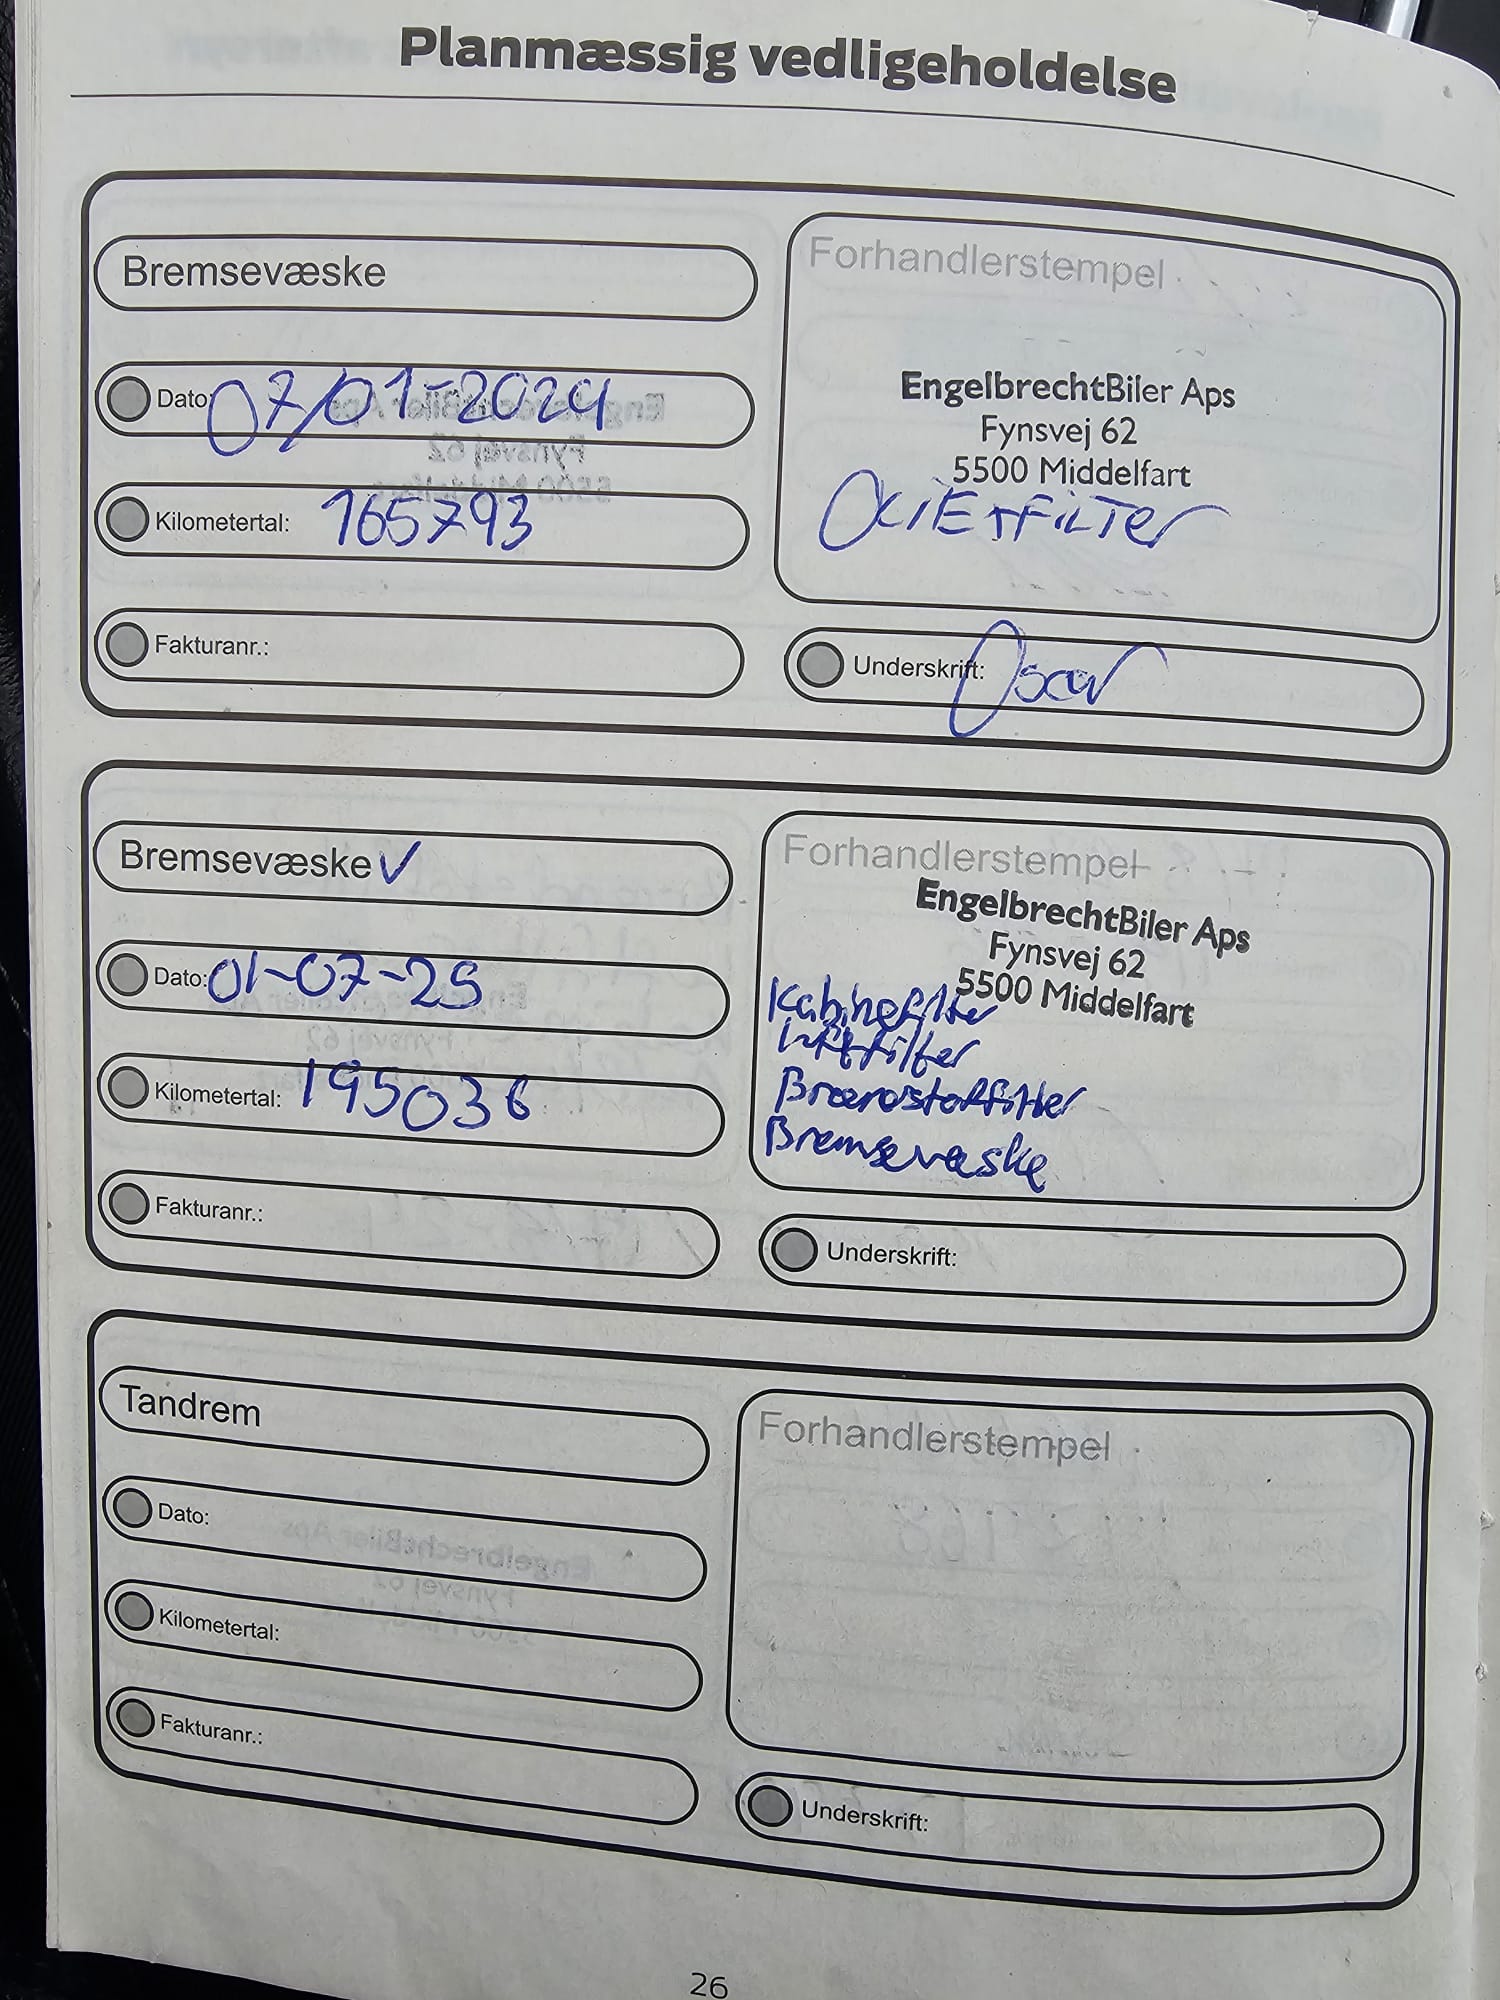 Planmæssig vedligeholdelse
Bremsevæske
Dato: 07/01-2024
Kilometertal: 165793
Fakturanr.:
Forhandlerstempel
EngelbrechtBiler Aps
Fynsvej 62
5500 Middelfart
OLIE+FILTER
Underskrift: Oscar
Bremsevæske ✓
Dato: 01-07-25
Kilometertal: 195036
Fakturanr.:
Forhandlerstempel
EngelbrechtBiler Aps
Fynsvej 62
5500 Middelfart
Kabinefilter
Luftfilter
Brændstoffilter
Bremsevæske
Underskrift:
Tandrem
Dato:
Kilometertal:
Fakturanr.:
Forhandlerstempel
Underskrift:
26